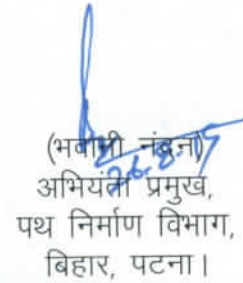 (भवानी नंदन)
26.8.15
अभियंता प्रमुख,
पथ निर्माण विभाग,
बिहार, पटना।